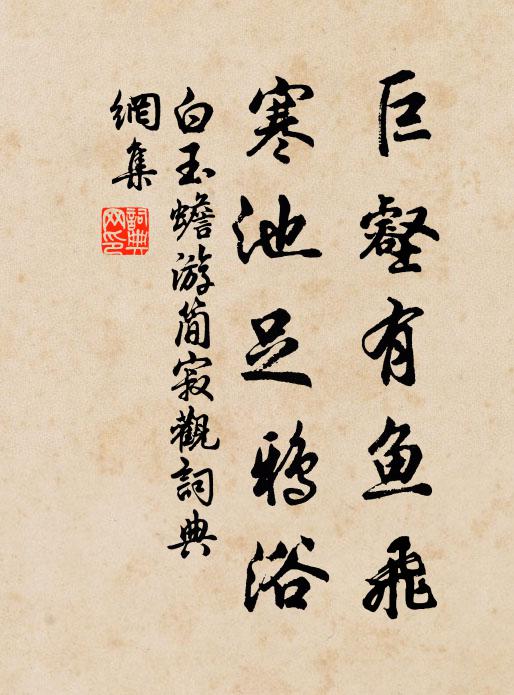 巨壑有鱼飛
寒池足鴉浴
白玉蟾游简寂觀詞典
網集
詞典网印